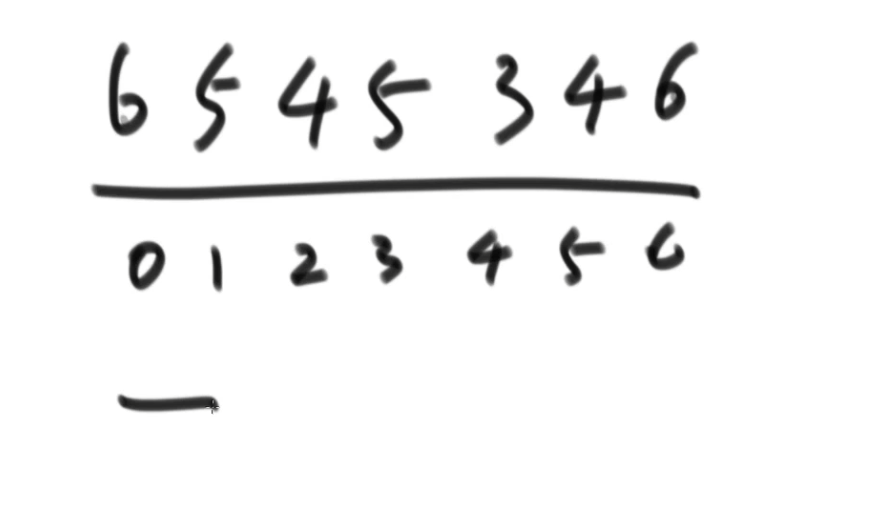 6 5 4 5 3 4 6
0 1 2 3 4 5 6